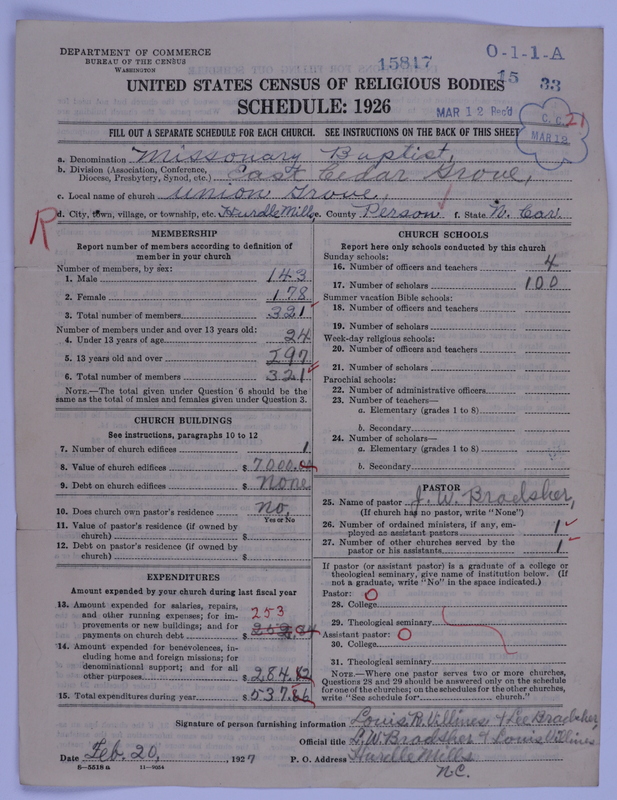 DEPARTMENT OF COMMERCE
BUREAU OF THE CENSUS
WASHINGTON
15817
O-1-1-A
UNITED STATES CENSUS OF RELIGIOUS BODIES
15 33
SCHEDULE: 1926
MAR 12 Rec'd
C. C. 21
MAR 12
FILL OUT A SEPARATE SCHEDULE FOR EACH CHURCH. SEE INSTRUCTIONS ON THE BACK OF THIS SHEET
a. Denomination Missonary Baptist,
b. Division (Association, Conference, Diocese, Presbytery, Synod, etc.) East Cedar Grove,
c. Local name of church Union Grove,
R
d. City, town, village, or township, etc. Hurdle Mill, e. County Person f. State N. Car.
MEMBERSHIP
Report number of members according to definition of
member in your church
Number of members, by sex:
1. Male 143
2. Female 178
3. Total number of members 321
Number of members under and over 13 years old:
4. Under 13 years of age 24
5. 13 years old and over 297
6. Total number of members 321
NOTE.—The total given under Question 6 should be
the same as the total of males and females given under Question 3.
CHURCH BUILDINGS
See instructions, paragraphs 10 to 12
7. Number of church edifices 1
8. Value of church edifices $ 7000.00
9. Debt on church edifices $ None
10. Does church own pastor's residence No,
Yes or No
11. Value of pastor's residence (if owned by
church) $
12. Debt on pastor's residence (if owned by
church) $
EXPENDITURES
Amount expended by your church during last fiscal year
13. Amount expended for salaries, repairs,
and other running expenses; for im-
provements or new buildings; and for
payments on church debt $ 253
14. Amount expended for benevolences, in-
cluding home and foreign missions; for
denominational support; and for all
other purposes $ 284.12
15. Total expenditures during year $ 537.
CHURCH SCHOOLS
Report here only schools conducted by this church
Sunday schools:
16. Number of officers and teachers 4
17. Number of scholars 100
Summer vacation Bible schools:
18. Number of officers and teachers
19. Number of scholars
Week-day religious schools:
20. Number of officers and teachers
21. Number of scholars
Parochial schools:
22. Number of administrative officers
23. Number of teachers—
a. Elementary (grades 1 to 8)
b. Secondary
24. Number of scholars—
a. Elementary (grades 1 to 8)
b. Secondary
PASTOR
25. Name of pastor J. W. Bradsher,
(If church has no pastor, write "None")
26. Number of ordained ministers, if any, em-
ployed as assistant pastors 1
27. Number of other churches served by the
pastor or his assistants 1
If pastor (or assistant pastor) is a graduate of a college or
theological seminary, give name of institution below. (If
not a graduate, write "No" in the space indicated.)
Pastor: O
28. College
29. Theological seminary
Assistant pastor: O
30. College
31. Theological seminary
NOTE.—Where one pastor serves two or more churches,
Questions 28 and 29 should be answered only on the schedule
for one of the churches; on the schedules for the other churches,
write "See schedule for church."
Signature of person furnishing information Louis R. Villines & Lee Bradsher,
Official title L. W. Bradsher & Louis Villines
Date Feb. 20, 1927 P. O. Address Hurdle Mills
N.C.
8—5518 a 11—9054